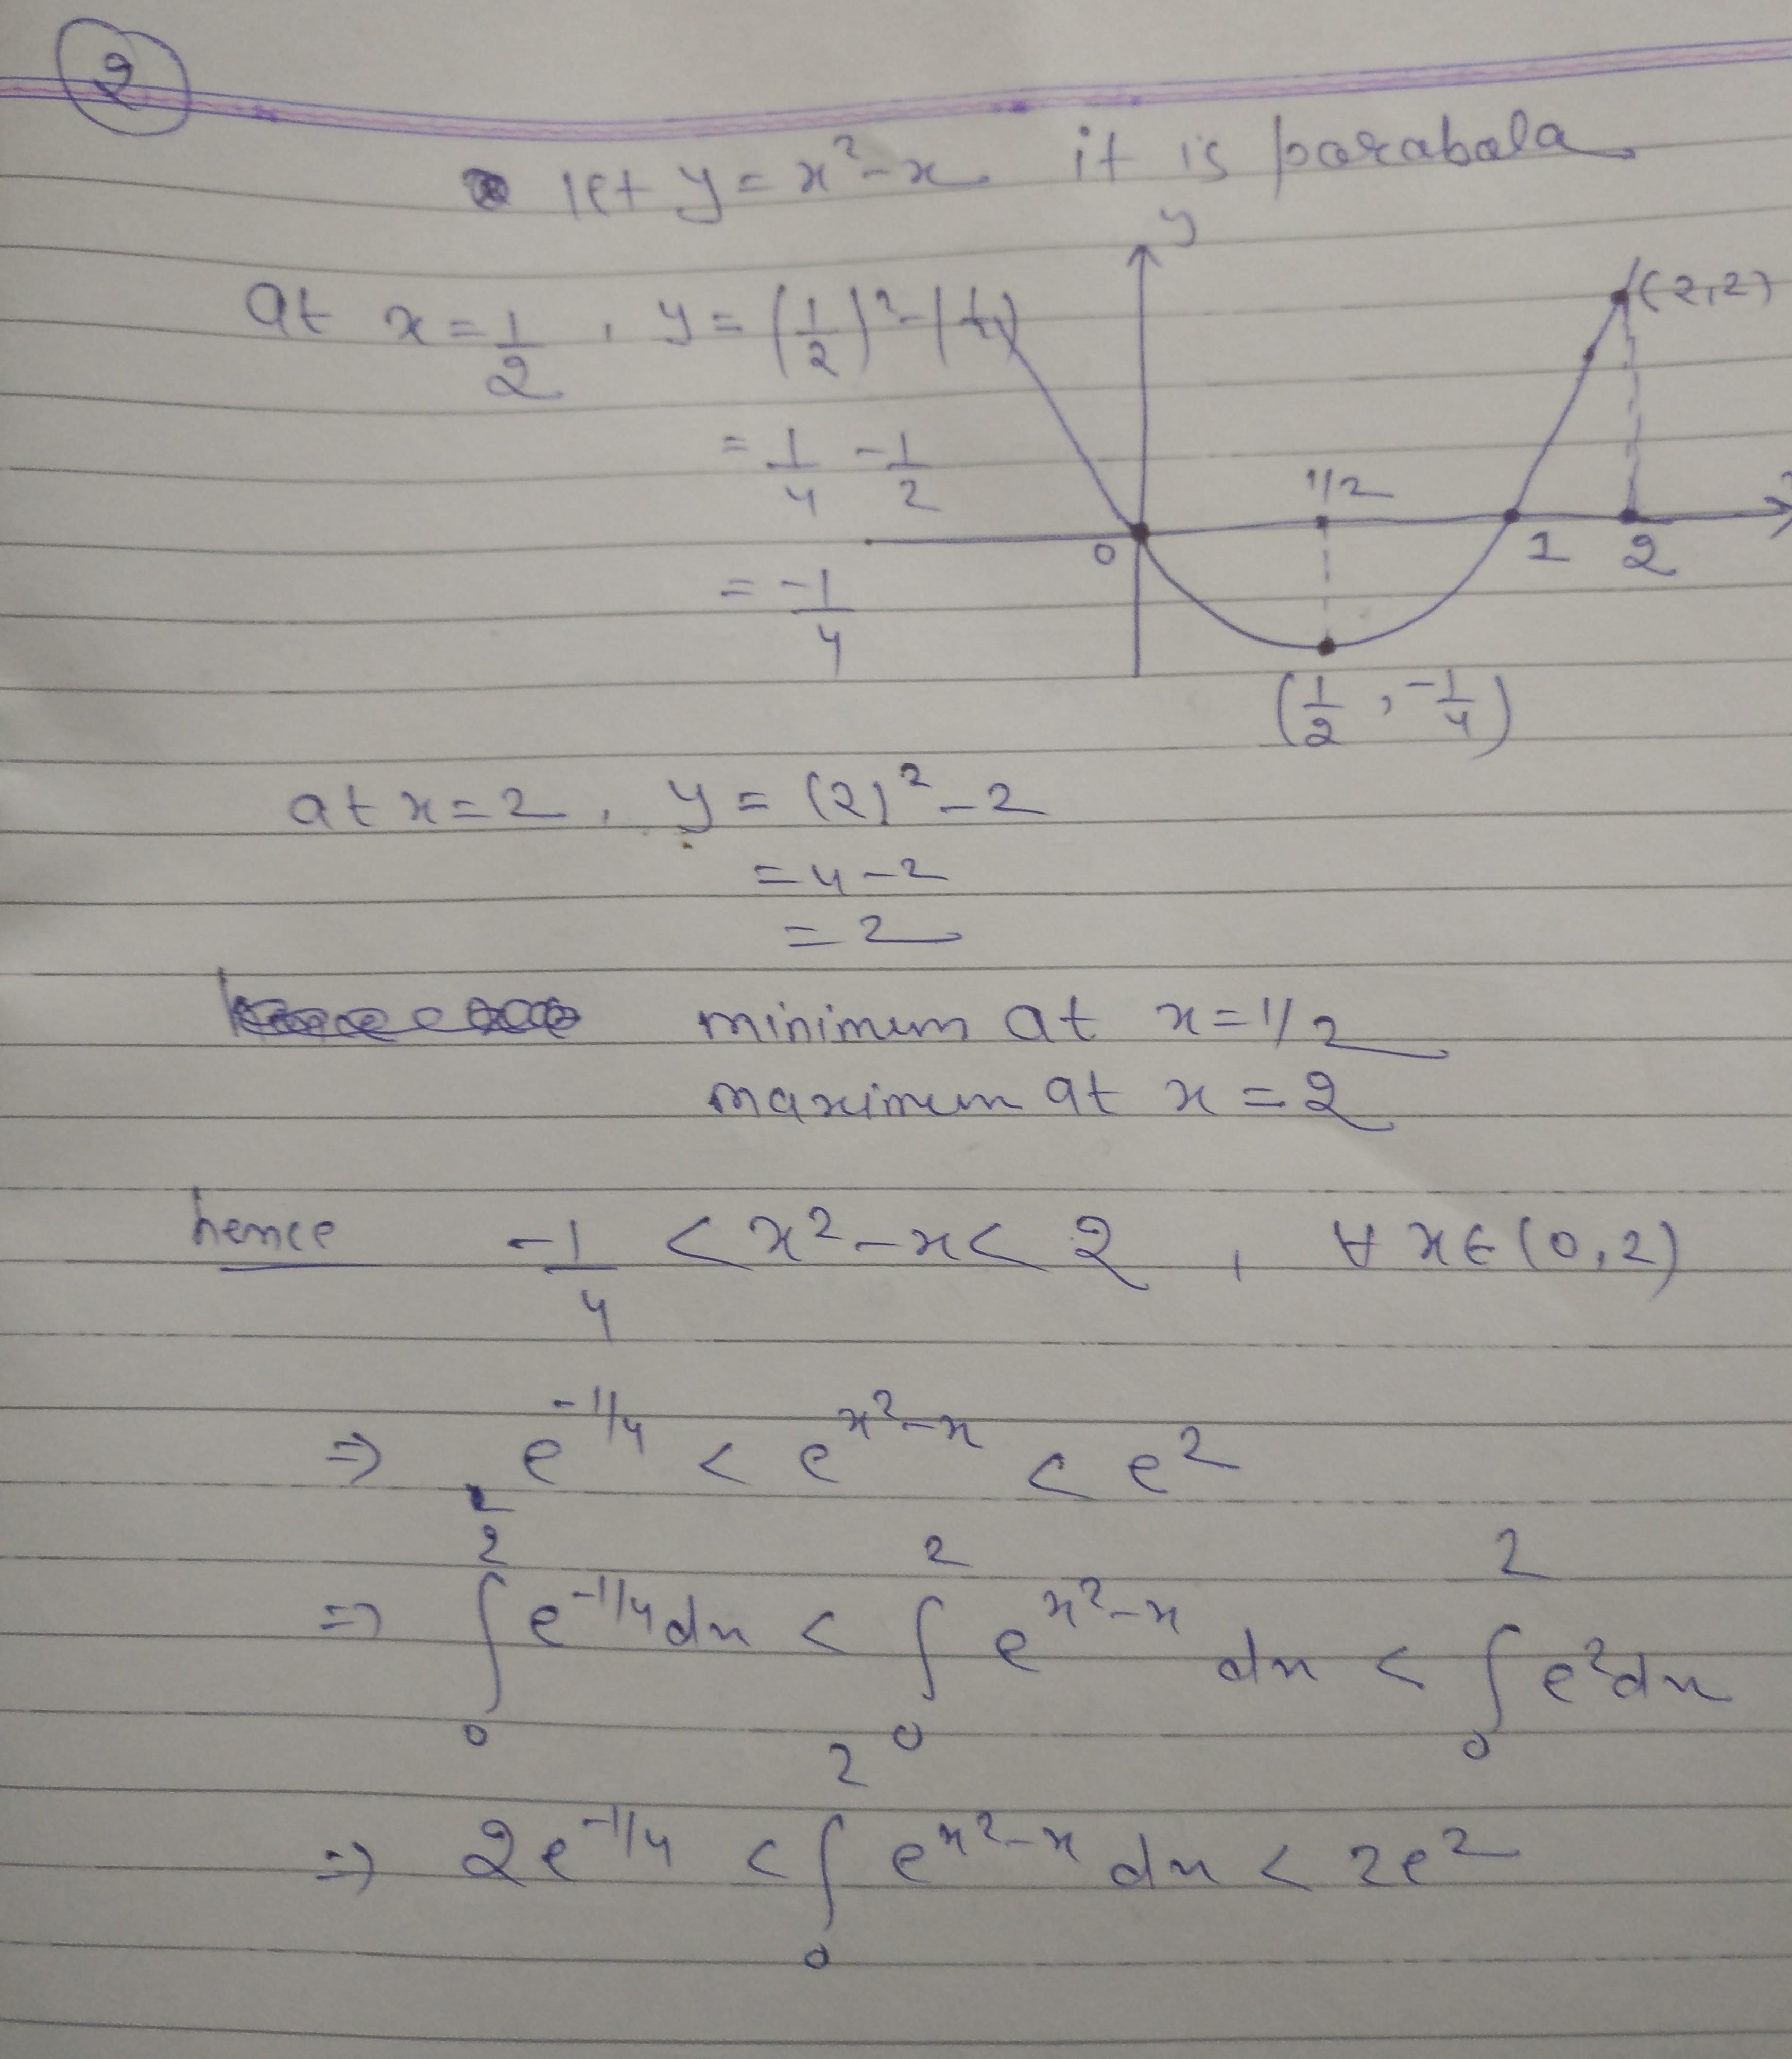 2
let y = x²-x it is parabala
y
at x = 1/2 , y = (1/2)² - (1/2)
(2,2)
= 1/4 - 1/2
1/2
0 1 2
= -1/4
(1/2, -1/4)
at x = 2 , y = (2)² - 2
= 4 - 2
= 2
minimum at x = 1/2
maximum at x = 2
hence -1/4 < x² - x < 2 , ∀ x ∈ (0,2)
⇒ e^{-1/4} < e^{x²-x} < e²
⇒ ∫₀² e^{-1/4} dx < ∫₀² e^{x²-x} dx < ∫₀² e² dx
⇒ 2e^{-1/4} < ∫₀² e^{x²-x} dx < 2e²